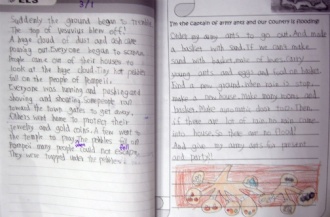 3/1
Suddenly the ground began to tremble
The top of Vesuvius blew off!
A huge cloud of dust and ash came
pouring out. Everyone began to scream
People came out of their houses to
look at the huge cloud. Tiny hot pebbles
fell on the people of Pompeii.
Everyone was running and pushing and
shoving and shouting. Some people ran
toward the town gates to get away.
Others went home to protect their
jewelry and gold coins. A few went to
the temple to pray. The pebbles fell on
Pompeii many people could not escape.
They were trapped under the pebbles
I'm the captain of army ants and our country is flooding!
army ants to go out. And make
a basket with sand. If we can't make
sand with basket, make of leaves. Carry
young ants and eggs and food on basket
Find a new ground. When rain is stop,
make a new house. Make many rooms and
door. Then,
if there are lot of rain, no rain come
into house. So there are no flood!
And give my army ants for present
and party!